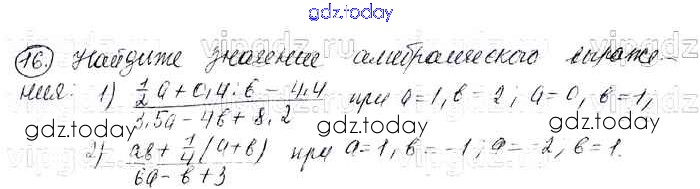 gdz.today
16. Найдите значение алгебраического выраже-
ния: 1) (1/2 a + 0,4 : b - 4,4) / (3,5a - 4b + 8,2) при a = 1, b = 2; a = 0, b = 1;
gdz.today gdz.today
2) (ab + 1/4 (a + b)) / (6a - b + 3) при a = 1, b = -1; a = -2, b = 1.
gdz.today